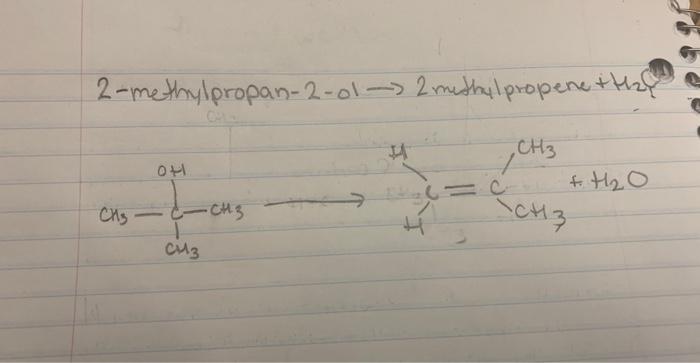 2-methylpropan-2-ol → 2 methylpropene + H2O
OH
CH3 — C — CH3
CH3
→
H
H
C = C
CH3
CH3
+ H2O